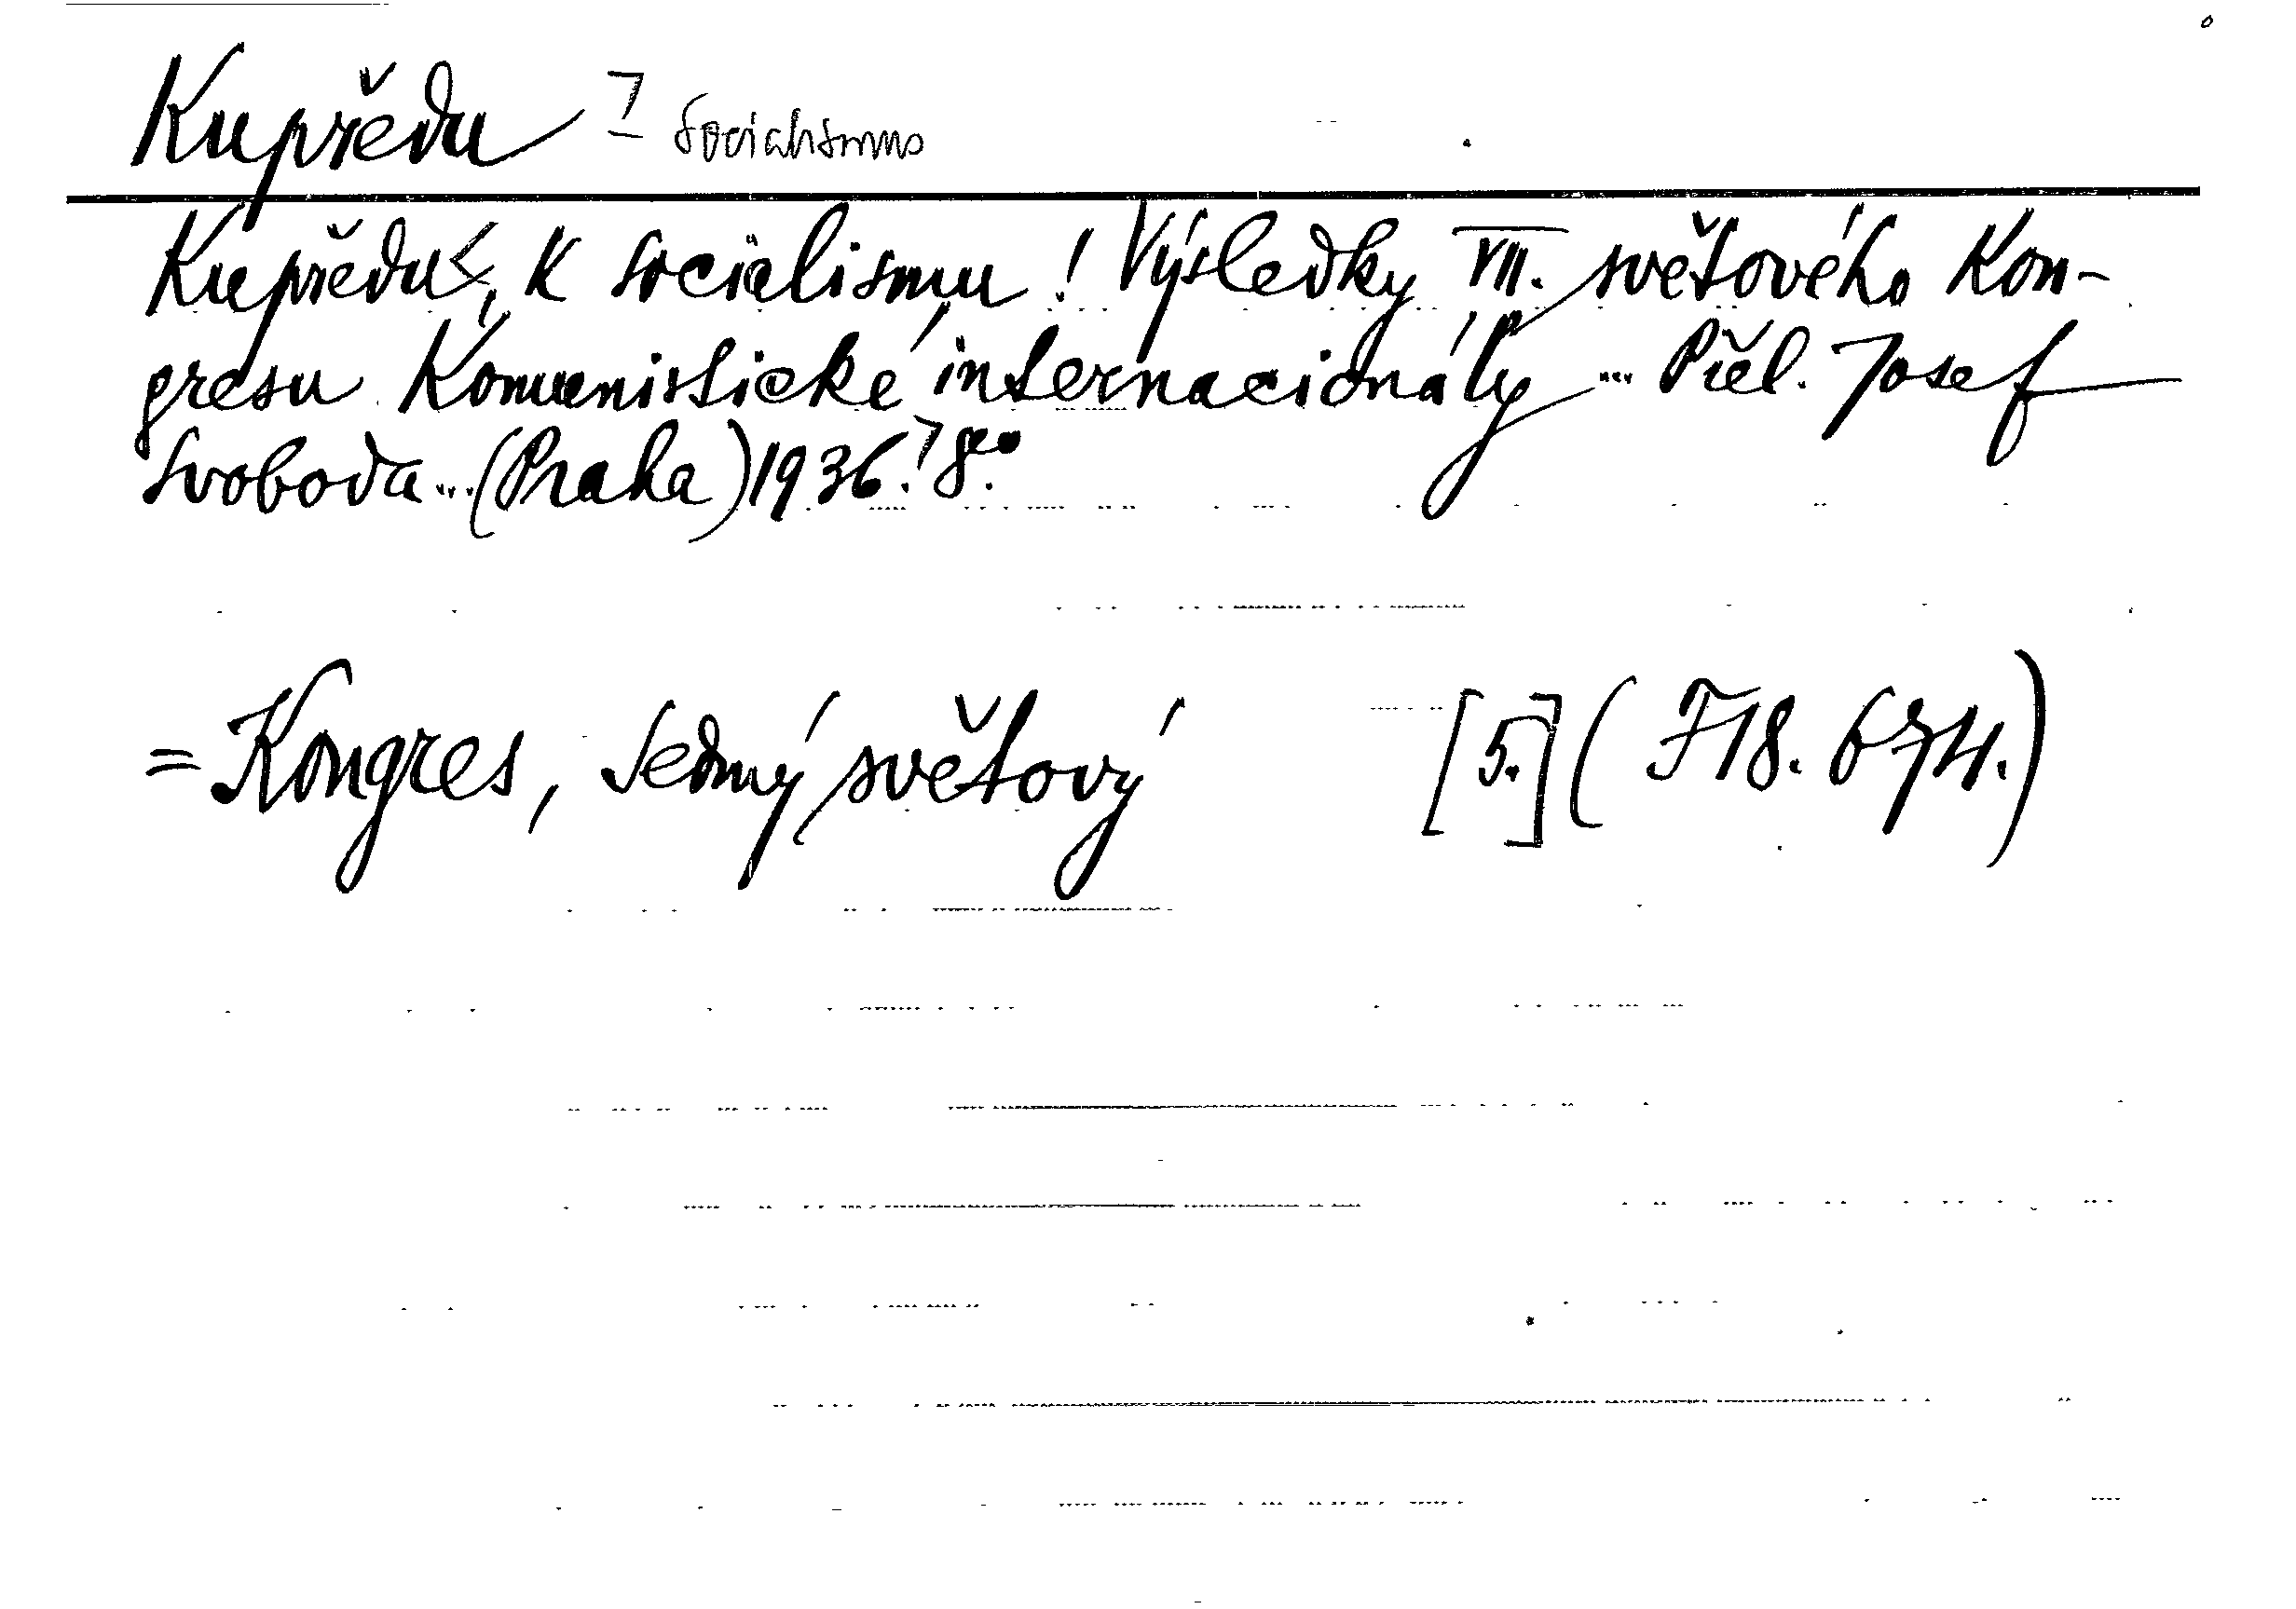 Kupředu socialismus
Kupředu, K socialismu! Výsledky VII. světového Kon-
gresu Komunistické internacionály... Přel. Josef
Svoboda...(Praha)1936. 8°.
= Kongres, sedmý světový [5.] (F18.674.)